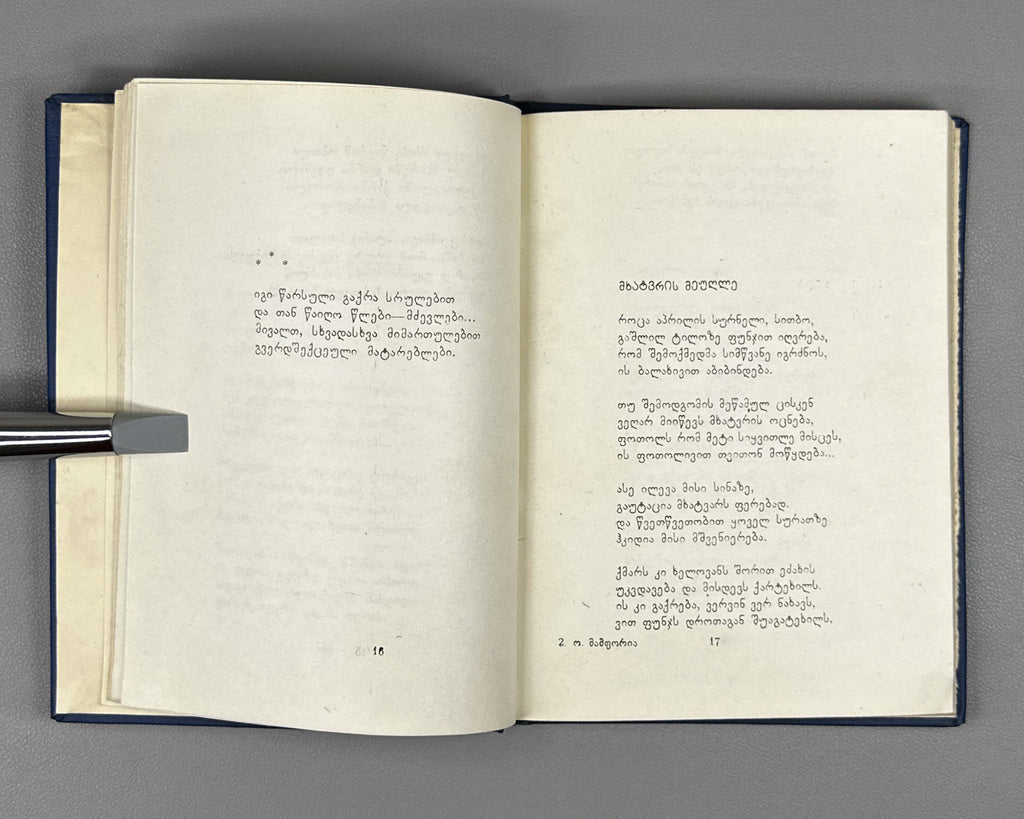 * * *
იგი წარსული გაქრა სრულებით
და თან წაიღო წლები—მძევლები...
მივალთ, სხვადასხვა მიმართულებით
გვერდშექცეული მატარებლები.
16
მხატვრის მეუღლე
როცა აპრილის სურნელი, სითბო,
გაშლილ ტილოზე ფუნჯით იღვრება,
რომ შემოქმედმა სიმწვანე იგრძნოს,
ის ბალახივით აბიბინდება.
თუ შემოდგომის მეწამულ ცისკენ
ვეღარ მიიწევს მხატვრის ოცნება,
ფოთოლს რომ მეტი სიყვითლე მისცეს,
ის ფოთოლივით თვითონ მოწყდება...
ასე ილევა მისი სინაზე,
გაუტაცია მხატვარს ფერებად.
და წვეთწვეთობით ყოველ სურათზე
ჰკიდია მისი მშვენიერება.
ქმარს კი ხელოვანს შორით ეძახის
უკვდავება და მისდევს ქარტეხილს.
ის კი გაქრება, ვერვინ ვერ ნახავს,
ვით ფუნჯს დროთაგან შუაგატეხილს.
2. ო. მამფორია 17